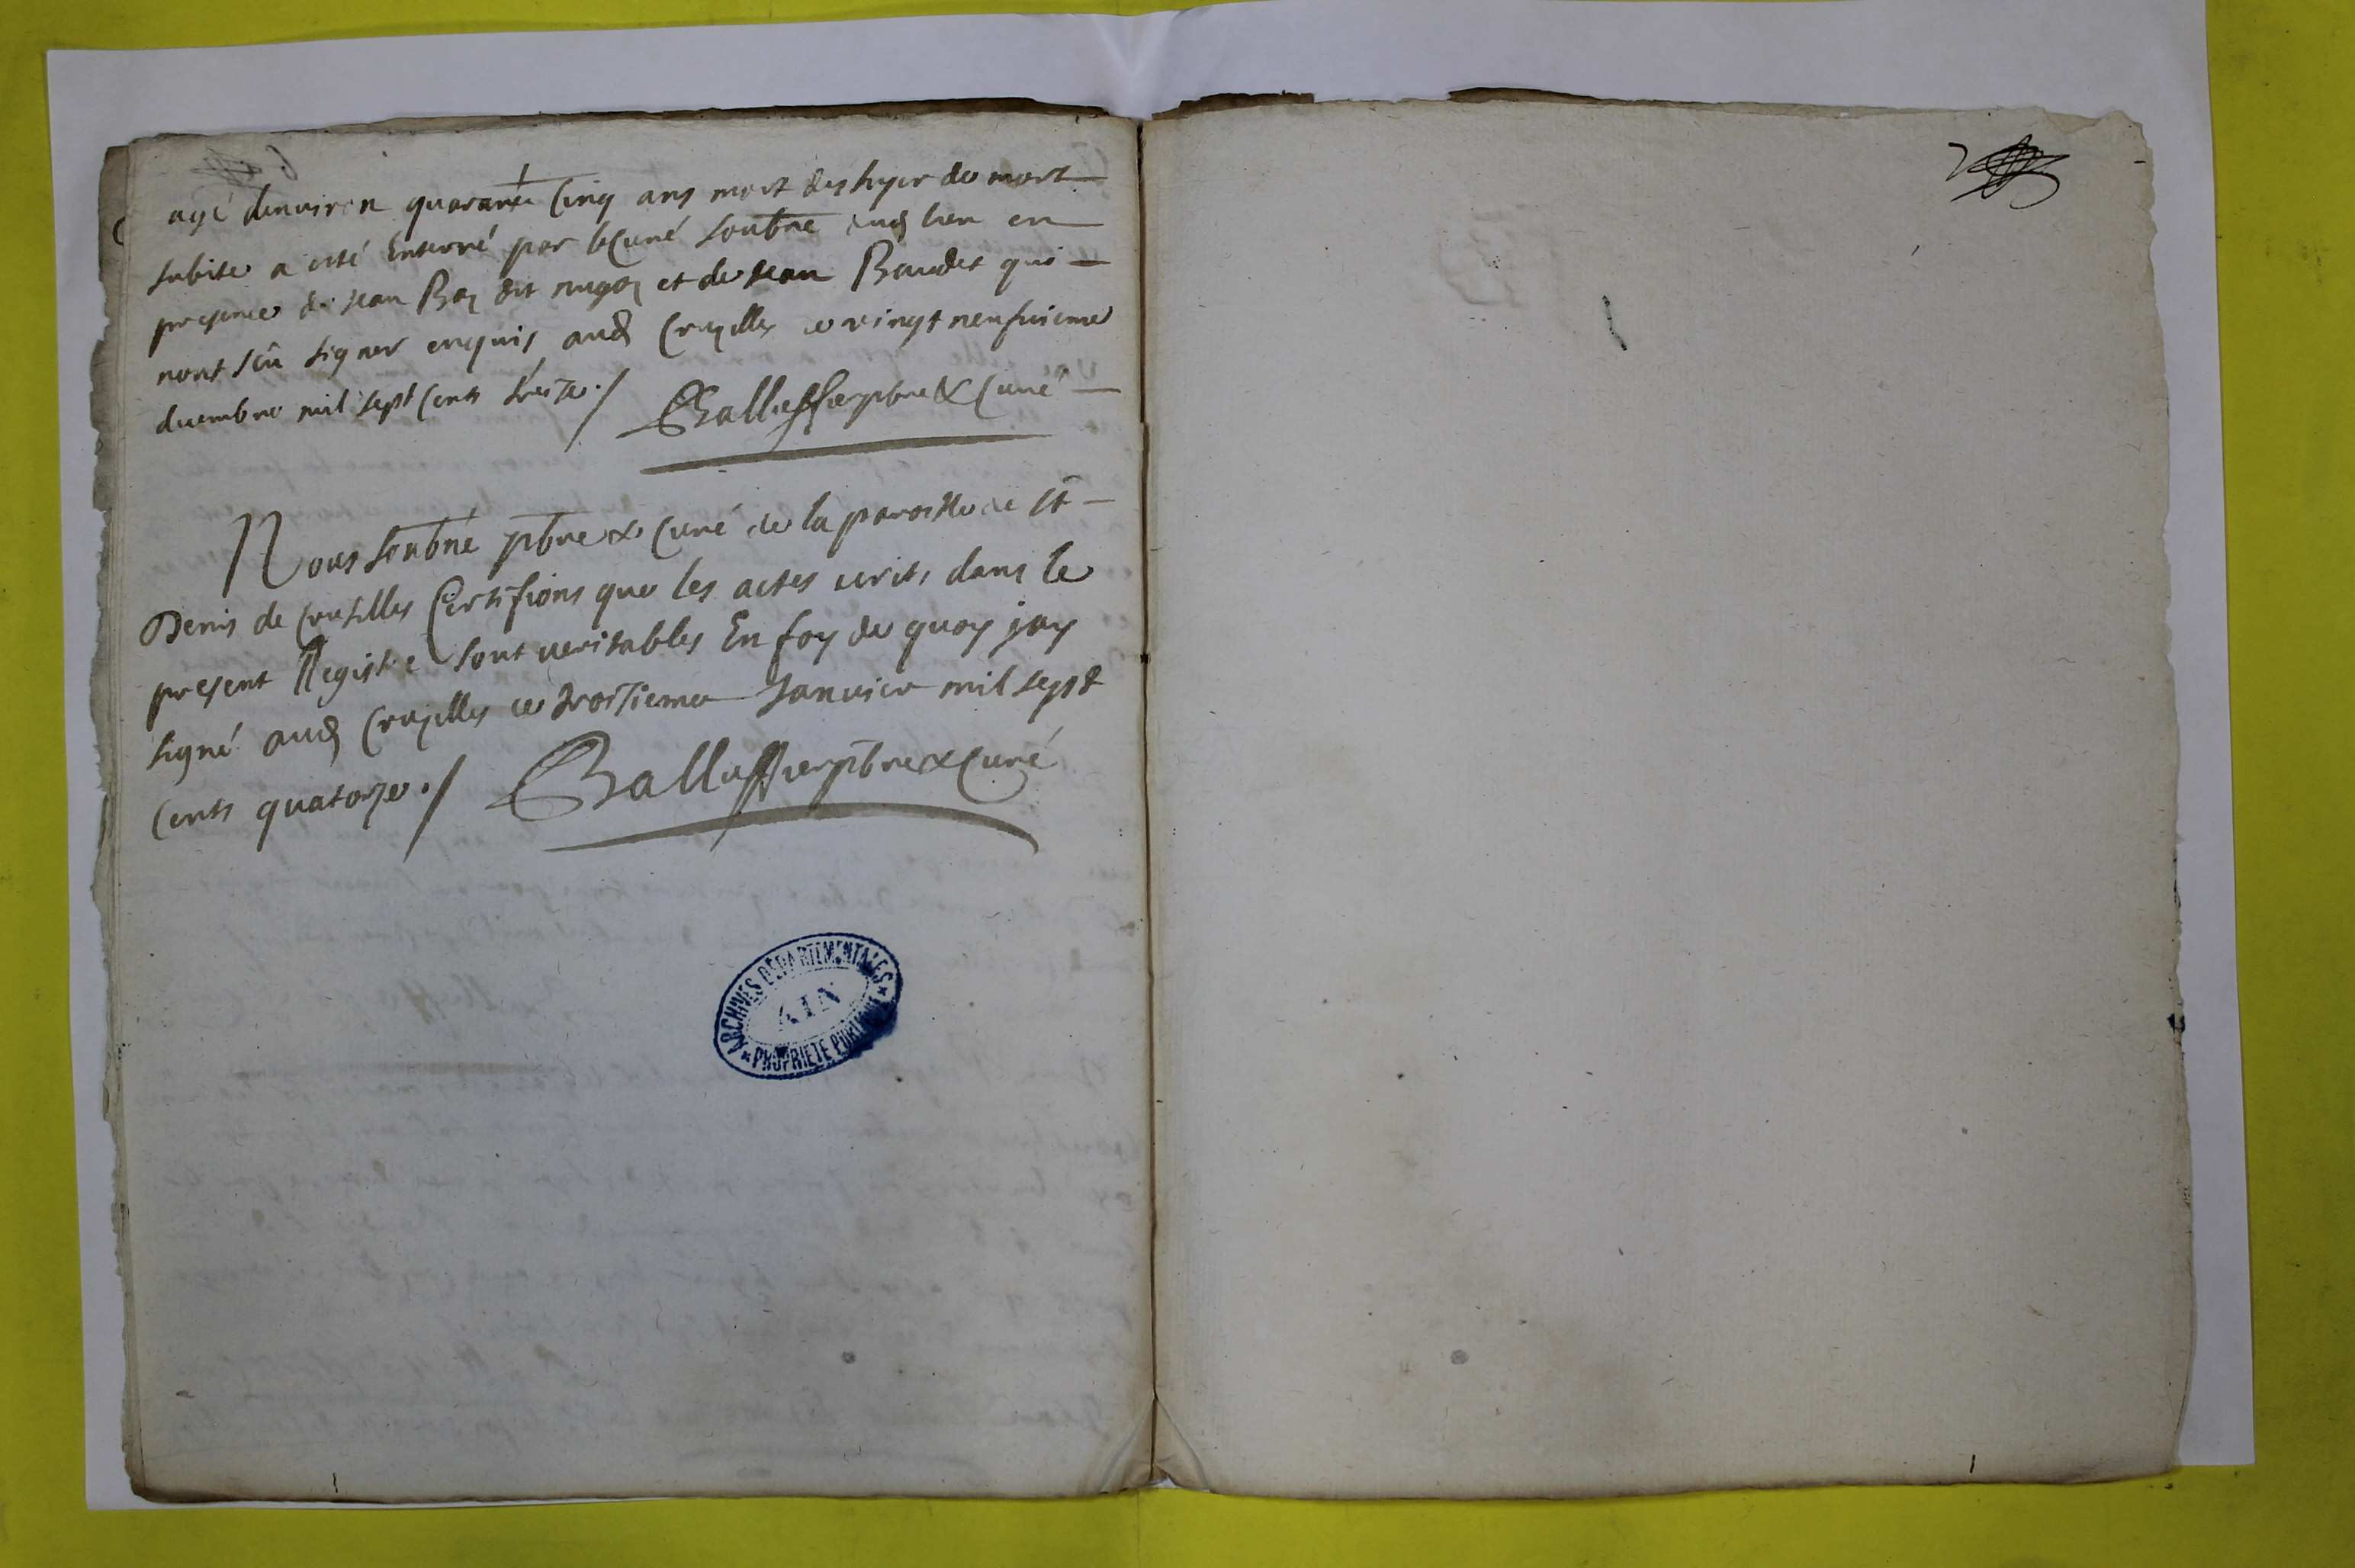 agé denviron quarante Cinq ans mort des hyer de mort
subite a esté Enterré par le Curé soubné aud lieu en
presence de Jean Boy dit mugoy et de Jean Baudet qui
nont sçu signer enquis aud Crusilles ce vingt neufvieme
decembre mil sept cents treize ./ Balluffier pbre & Curé
Nous soubné pbre & Curé de la paroisse de St
Denis de Crusilles Certifions que les actes ecrits dans le
present Registre sont veritables En foy de quoy jay
signé aud Crusilles ce troisieme Janvier mil sept
cents quatorze ./ Balluffier pbre & Curé
ARCHIVES DÉPARTEMENTALES
AIN
PROPRIÉTÉ PUBLIQUE
7